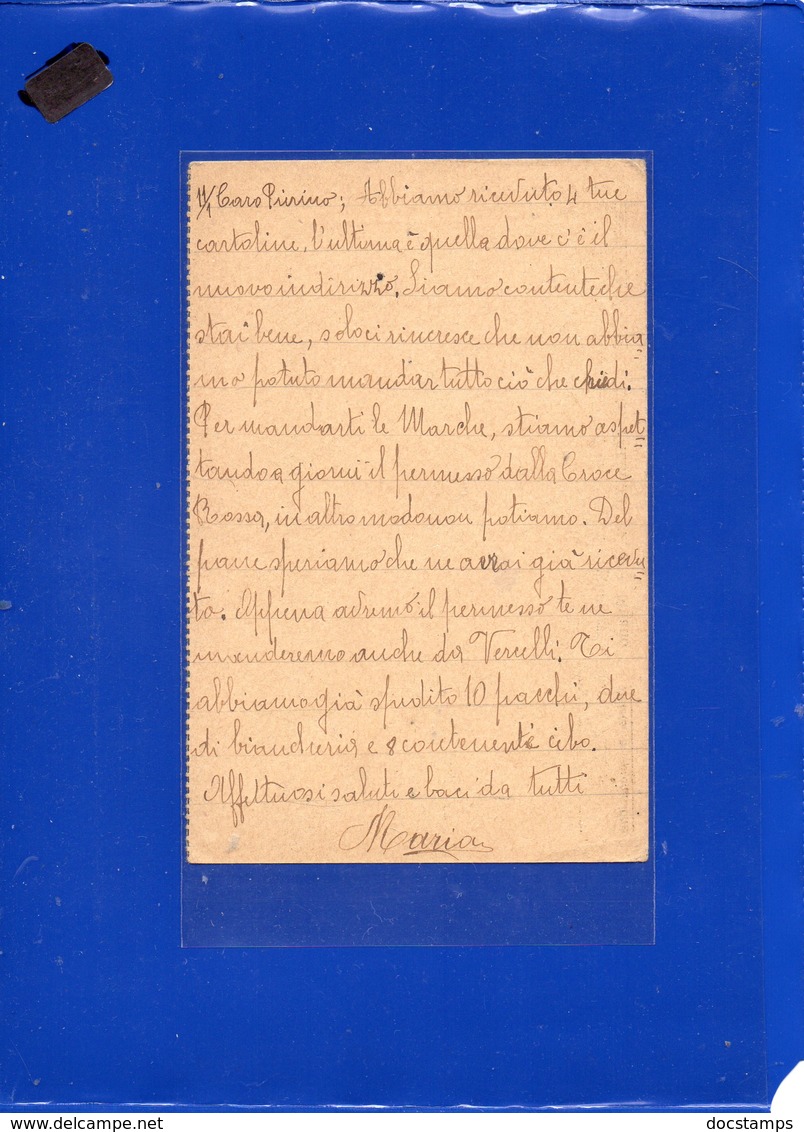 11/1 Caro Pierino; Abbiamo ricevuto 4 tue
cartoline, l'ultima è quella dove c'è il
nuovo indirizzo. Siamo contente che
stai bene, solo ci rincresce che non abbia
mo potuto mandar tutto ciò che chiedi.
Per mandarti le Marche, stiamo aspet
tando a giorni il permesso dalla Croce
Rossa, in altro modo non potiamo. Del
pane speriamo che ne avrai già ricevu
to. Appena avremo il permesso te ne
manderemo anche da Vercelli. Ti
abbiamo già spedito 10 pacchi, due
di biancheria e 8 contenenti cibo.
Affettuosi saluti e baci da tutti
Maria
docstamps